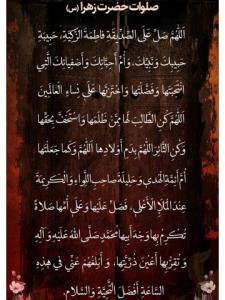 صلوات حضرت زهرا (س)
اَللّهُمَّ صَلِّ عَلَى الصِّدّیقَةِ فاطِمَةَ الزَّکِیَّةِ، حَبیبَةِ
حَبیبِکَ وَ نَبِیِّکَ، وَ اُمِّ اَحِبّائِکَ وَ اَصْفِیائِکَ الَّتِی
انْتَجَبْتَها وَ فَضَّلْتَها وَ اخْتَرْتَها عَلى نِساءِ الْعالَمینَ
اَللّهُمَّ کُنِ الطّالِبَ لَها مِمَّنْ ظَلَمَها وَ اسْتَخَفَّ بِحَقِّها
وَ کُنِ الثّائِرَ اَللّهُمَّ بِدَمِ اَوْلادِها اَللّهُمَّ وَ کَما جَعَلْتَها
اُمَّ اَئِمَّةِ الْهُدى وَ حَلیلَةَ صاحِبِ اللِّواءِ وَ الْکَریمَةَ
عِنْدَ الْمَلاَءِ الْأَعْلى، فَصَلِّ عَلَیْها وَ عَلى اُمِّها صَلاةً
تُکْرِمُ بِها وَجْهَ اَبیها مُحَمَّدٍ صَلَّى اللّهُ عَلَیْهِ وَ آلِهِ
وَ تُقِرُّ بِها اَعْیُنَ ذُرِّیَّتِها، وَ اَبْلِغْهُمْ عَنّی فی هذِهِ
السّاعَةِ اَفْضَلَ التَّحِیَّةِ وَ السَّلامِ.